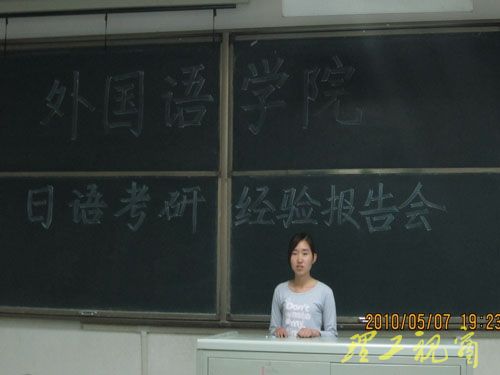 外国语学院
日语考研 经验报告会
Don't
2010/05/07 19:23
理工视窗